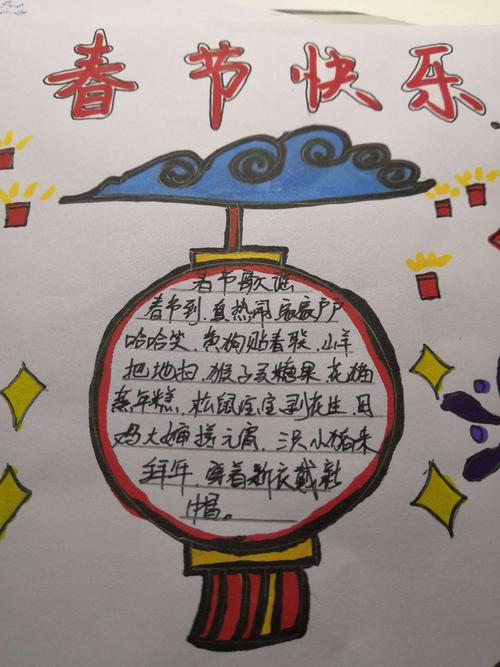 春节快乐
春节歌谣
春节到,真热闹,家家户户
哈哈笑,黄狗贴春联,山羊
把地扫,猴子买糖果,花猫
蒸年糕,松鼠宝宝剥花生,
妈大婶搓元宵,三只小猪来
拜年,穿着新衣戴新
帽。